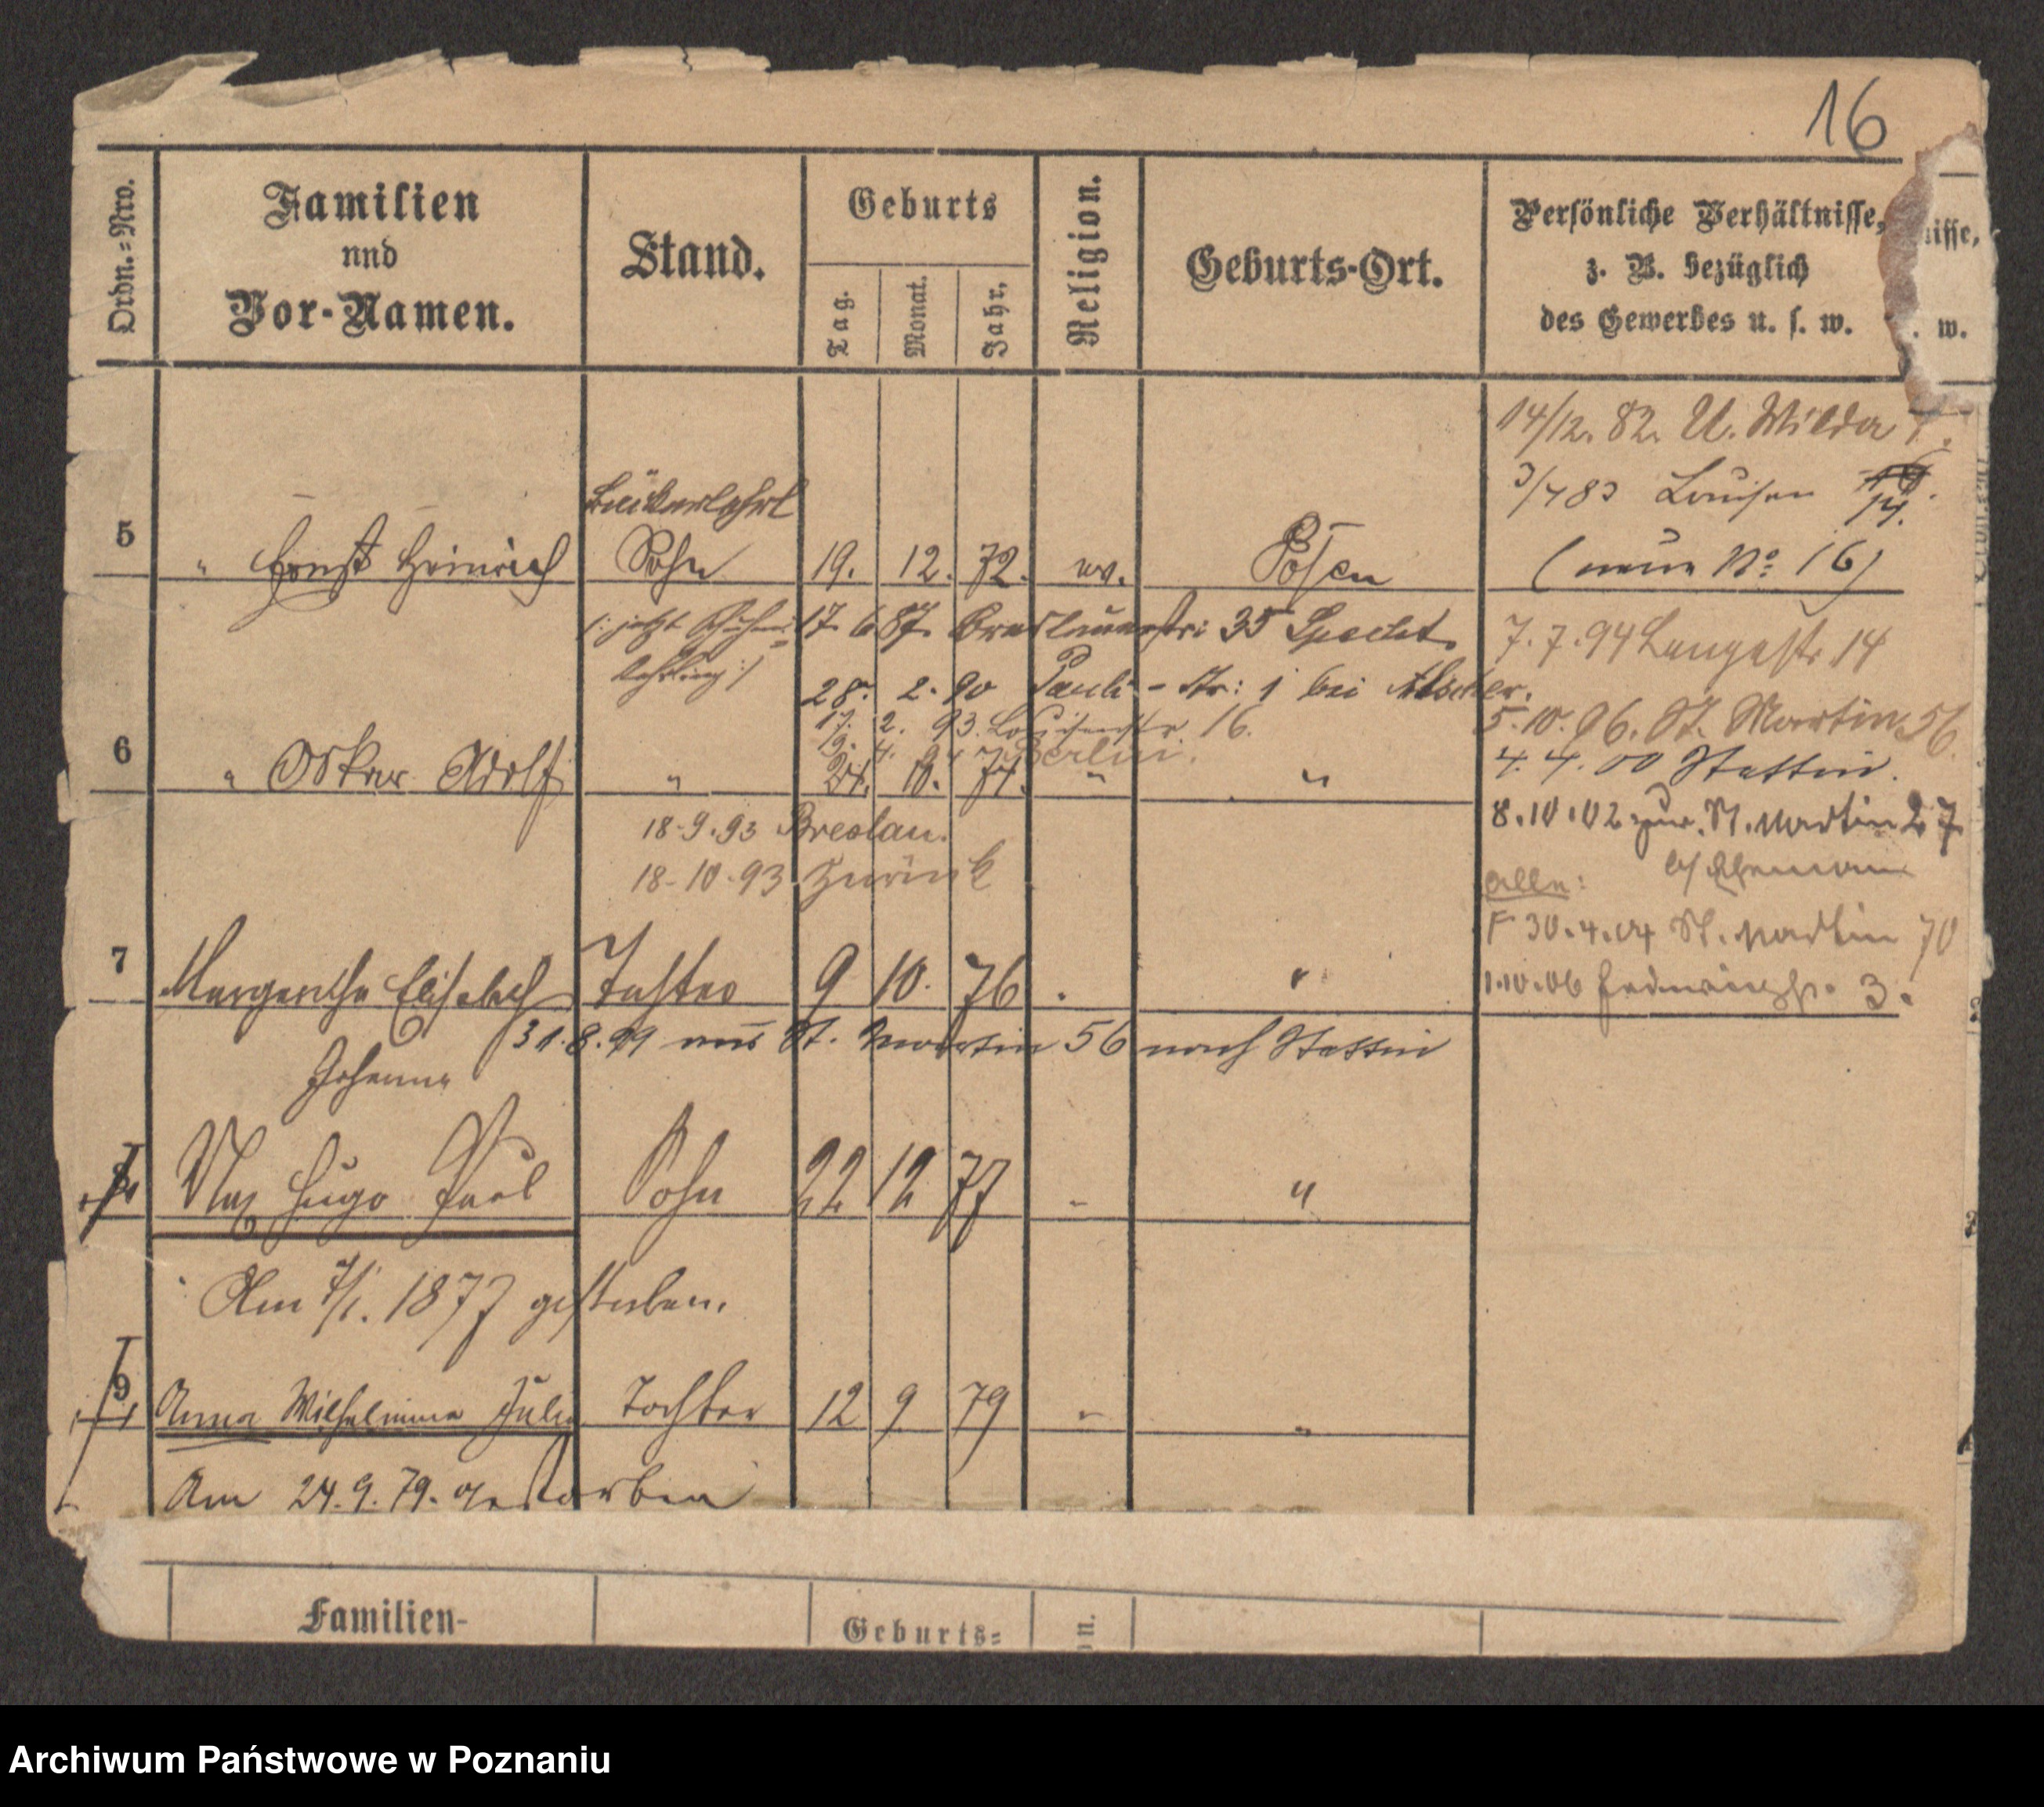 16
Ordn.=Nro.
Familien
und
Vor-Namen.
Stand.
Geburts
Tag.
Monat.
Jahr.
Religion.
Geburts-Ort.
Persönliche Verhältnisse,
z. B. bezüglich
des Gewerbes u. s. w.
isse,
. w.
14/12. 82. U. Wilda
3/7 83 Louisen 19.
14.
(neue No: 16)
5 " Ernst Heinrich Sohn 19. 12. 72. ev. Posen
(: jetzt 17. 6 87. Breslauerstr: 35 Specht.
Lehrling :)
28. 2. 90 Pauli-Str: 1 bei
17. 2. 93. Louisenstr. 16.
19. 4. 94 Berlin.
6 " Oskar Adolf " 21. 10. 74. " "
7.7.94 Langestr. 14
5.10.96. St. Martin 56
4. 4. 00 Stettin.
8.10.02 zur. St. Martin 27
b/
alle:
F 30.4.04 St. Martin 70
1.10.06 3.
18-9.93 Breslau.
18-10.93 zurück
7 Margarethe Elisabeth Tochter 9 10. 76 . "
Johanna
31.8.99 aus St. Martin 56 nach Stettin
8 Max Hugo Paul Sohn 22 12 77 - "
Am 7/1. 1877 gestorben.
9 Anna Wilhelmine Julie Tochter 12 9 79 " "
Am 24.9.79. gestorben
Familien-
Geburts=
n.
Archiwum Państwowe w Poznaniu